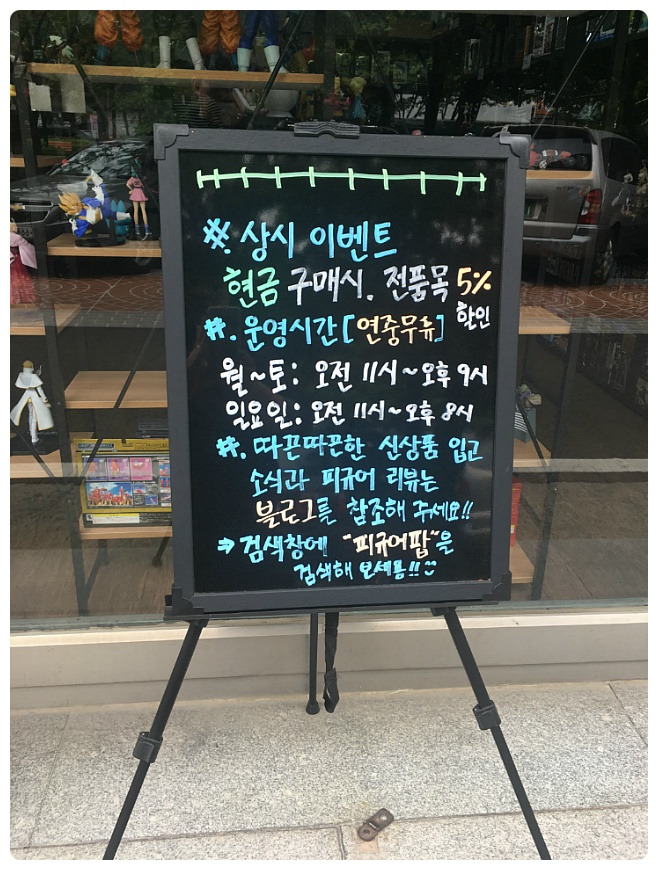 ※. 상시 이벤트
현금 구매시. 전품목 5%
할인
#. 운영시간 [연중무휴]
월~토: 오전 11시~오후 9시
일요일: 오전 11시~오후 8시
#. 따끈따끈한 신상품 입고
소식과 피규어 리뷰는
블로그를 참조해 주세요!!
→ 검색창에 "피규어팝"을
검색해 보세용!!